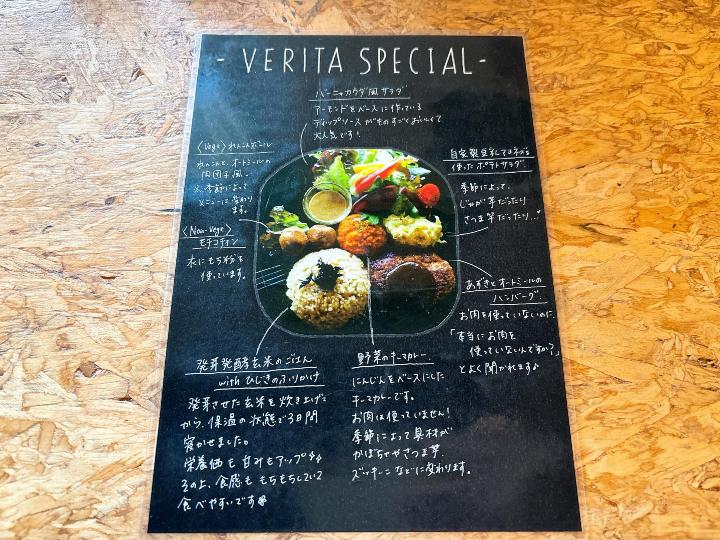 - VERITA SPECIAL -
バーニャカウダ風サラダ
アーモンドをベースに作っている
ディップソースがものすごくおいしくて
大人気です!
〈Vege〉れんこんボール
れんこんと、オートミールの
肉団子風。
※季節によって
メニューに変わり
ます。
〈Non-Vege〉
モチコチキン
衣にもち粉を
使っています。
自家製豆乳マヨネーズを
使ったポテトサラダ
季節によって、
じゃが芋だったり
さつま芋だったり...
あずきとオートミールの
ハンバーグ
お肉を使っていないのに、
「本当にお肉を
使っていないんですか?」
とよく聞かれます♪
発芽発酵玄米のごはん
with ひじきのふりかけ
発芽させた玄米を炊き上げて
から、保温の状態で3日間
寝かせました。
栄養価も甘みもアップ
その上、食感ももちもちしていて
食べやすいです
野菜のキーマカレー
にんじんをベースにした
キーマカレーです。
お肉は使っていません!
季節によって具材が
かぼちゃやさつま芋、
ズッキーニなどに変わります。